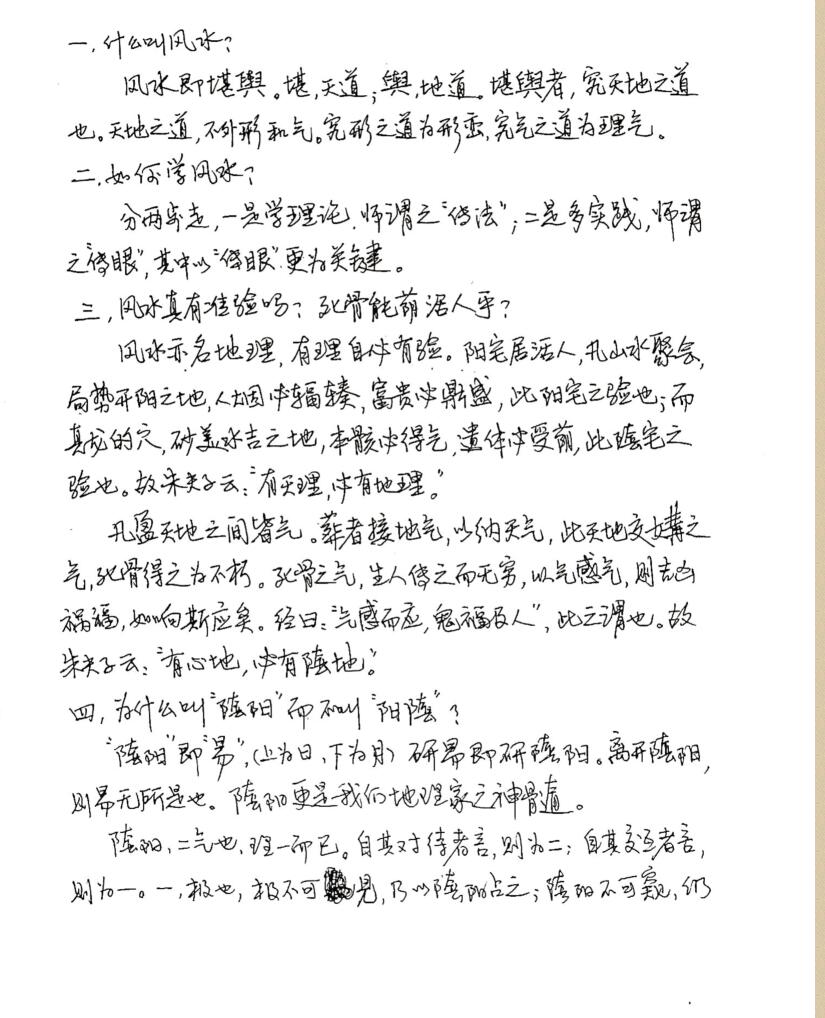 一,什么叫风水?
风水即堪舆。堪,天道;舆,地道。堪舆者,究天地之道
也。天地之道,不外形和气。究形之道为形峦,究气之道为理气。
二,如何学风水?
分两步走,一是学理论,师谓之“传法”;二是多实践,师谓
之“传眼”,其中以“传眼”更为关键。
三,风水真有准验吗?死骨能荫活人乎?
风水亦名地理,有理自必有验。阳宅居活人,凡山水聚会,
局势开阳之地,人烟必辐辏,富贵必鼎盛,此阳宅之验也;而
真龙的穴,砂美水吉之地,本骸必得气,遗体必受荫,此陰宅之
验也。故朱夫子云:“有天理,必有地理。”
凡盈天地之间皆气。葬者接地气,以纳天气,此天地交媾之
气,死骨得之为不朽。死骨之气,生人传之而无穷,以气感气,则吉凶
祸福,如响斯应矣。经曰:“气感而应,鬼福及人”,此之谓也。故
朱夫子云:“有心地,必有陰地。”
四,为什么叫“陰阳”而不叫“阳陰”?
“陰阳”即“易”,(上为日,下为月)研易即研陰阳。离开陰阳,
则易无所是也。陰阳更是我们地理家之神骨髓。
陰阳,二气也,理一而已。自其对待者言,则为二;自其交互者言,
则为一。一,极也,极不可見,乃以陰阳占之;陰阳不可窥,仍